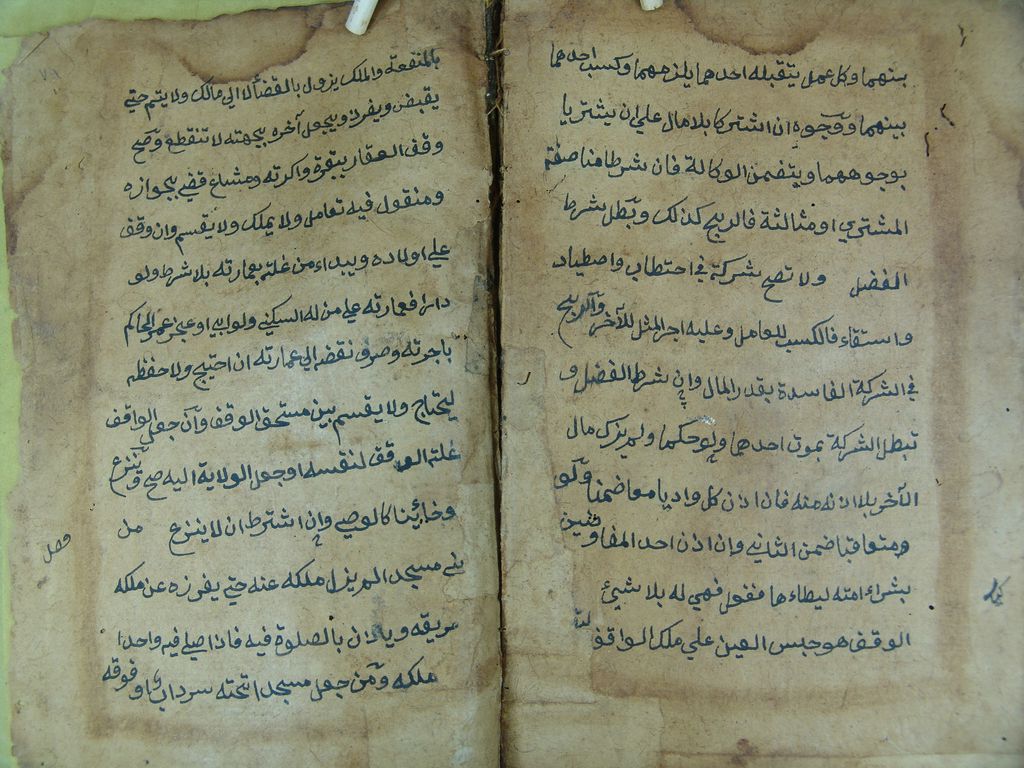 بينهما وكل عمل يتقبله احدهما يلزمهما وكسب احدهما
بينهما ووجوه ان اشتركا بلا مال علي ان يشتريا
بوجوههما ويتضمن الوكالة فان شرطا مناصفة
المشتري او مثالثة فالربح كذلك وبطل شرط
الفضل ولا تصح شركة في احتطاب واصطياد
واستقاء فالكسب للعامل وعليه اجر المثل للآخر والربح
في الشركة الفاسدة بقدر المال وان شرط الفضل و
تبطل الشركة بموت احدهما ولو حكما ولم يزك مال
الآخر بلا اذنه فان اذن كل واديا معا ضمنا ولو
ومتعاقبا ضمن الثاني وان اذن احد المفاوضين
بشراء امته ليطاءها ففعل فهي له بلا شيئ
الوقف هو حبس العين علي ملك الواقف
بالمنفعة والملك يزول بالقضاء لا الي مالك ولا يتم حتي
يقبض ويفرد ويجعل آخره بجهته لا تنقطع وصح
وقف العقار ببقره واكرته ومشاع قضي بجوازه
ومنقول فيه تعامل ولا يملك ولا يقسم وان وقف
علي اولاده ويبداء من غلته بعمارته بلا شرط ولو
دارا فعمارته علي من له السكني ولو ابي او عجز عمر الحاكم
باجرته وصرف نقضه الي عمارته ان احتيج ولا حفظه
ليحتاج ولا يقسم بين مستحق الوقف وان جعل الواقف
غلته الوقف لنفسه او جعل الولاية اليه صح وينزع
وخائنا كالوصي وان اشترط ان لا ينزع من
فصل
بني مسجدا لم يزل ملكه عنه حتي يفرزه عن ملكه
بطريقه وياذن بالصلوة فيه فاذا صلي فيه واحدا
ملكه ومن جعل مسجدا تحته سرداب او فوقه